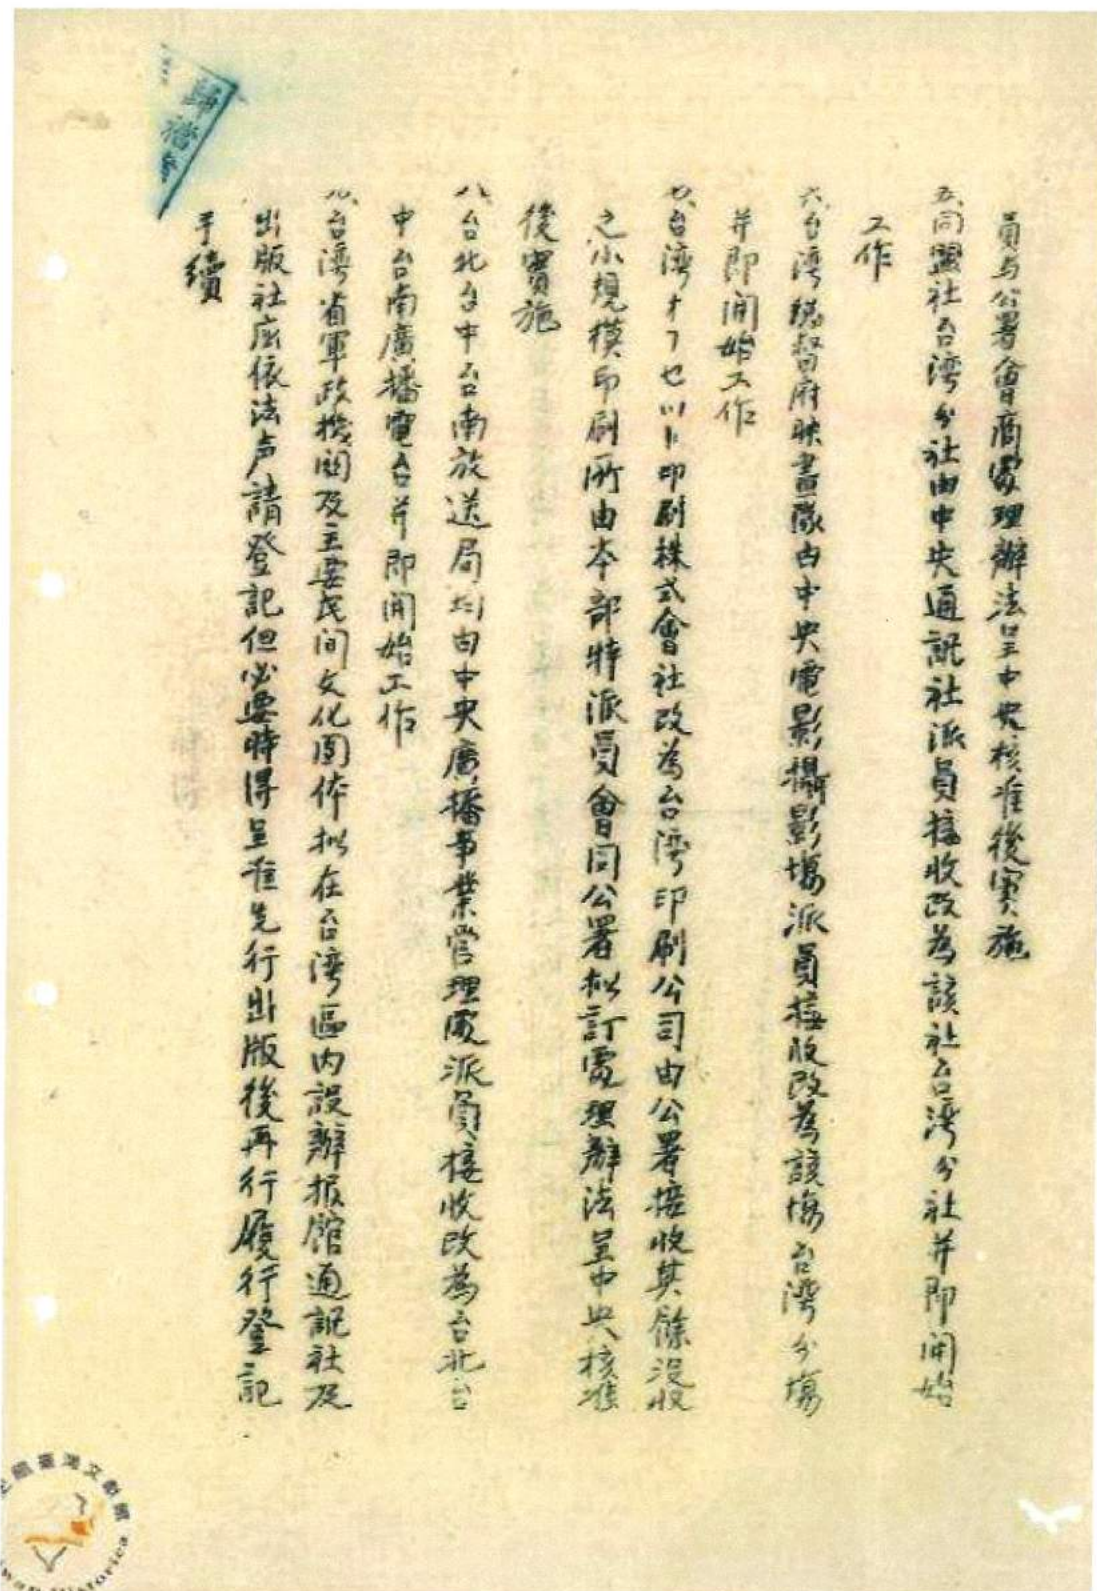 員与公署會商處理辦法呈中央核准後實施
五、同盟社台湾分社由中央通訊社派員接收改為該社台湾分社并即開始
工作
六、台湾總督府映畫隊由中央電影攝影場派員接收改為該場台湾分場
并即開始工作
七、台湾オフセット印刷株式會社改為台湾印刷公司由公署接收其餘沒收
之小規模印刷所由本部特派員會同公署拟訂處理辦法呈中央核准
後實施
八、台北台中台南放送局均由中央廣播事業管理處派員接收改為台北台
中台南廣播電台并即開始工作
九、台湾省軍政機関及主要民间文化团体拟在台湾區内設辦报館通訊社及
出版社应依法声請登記但必要時得呈准先行出版後再行履行登記
手續
歸檔
國臺灣文獻館
Taiwan Historica